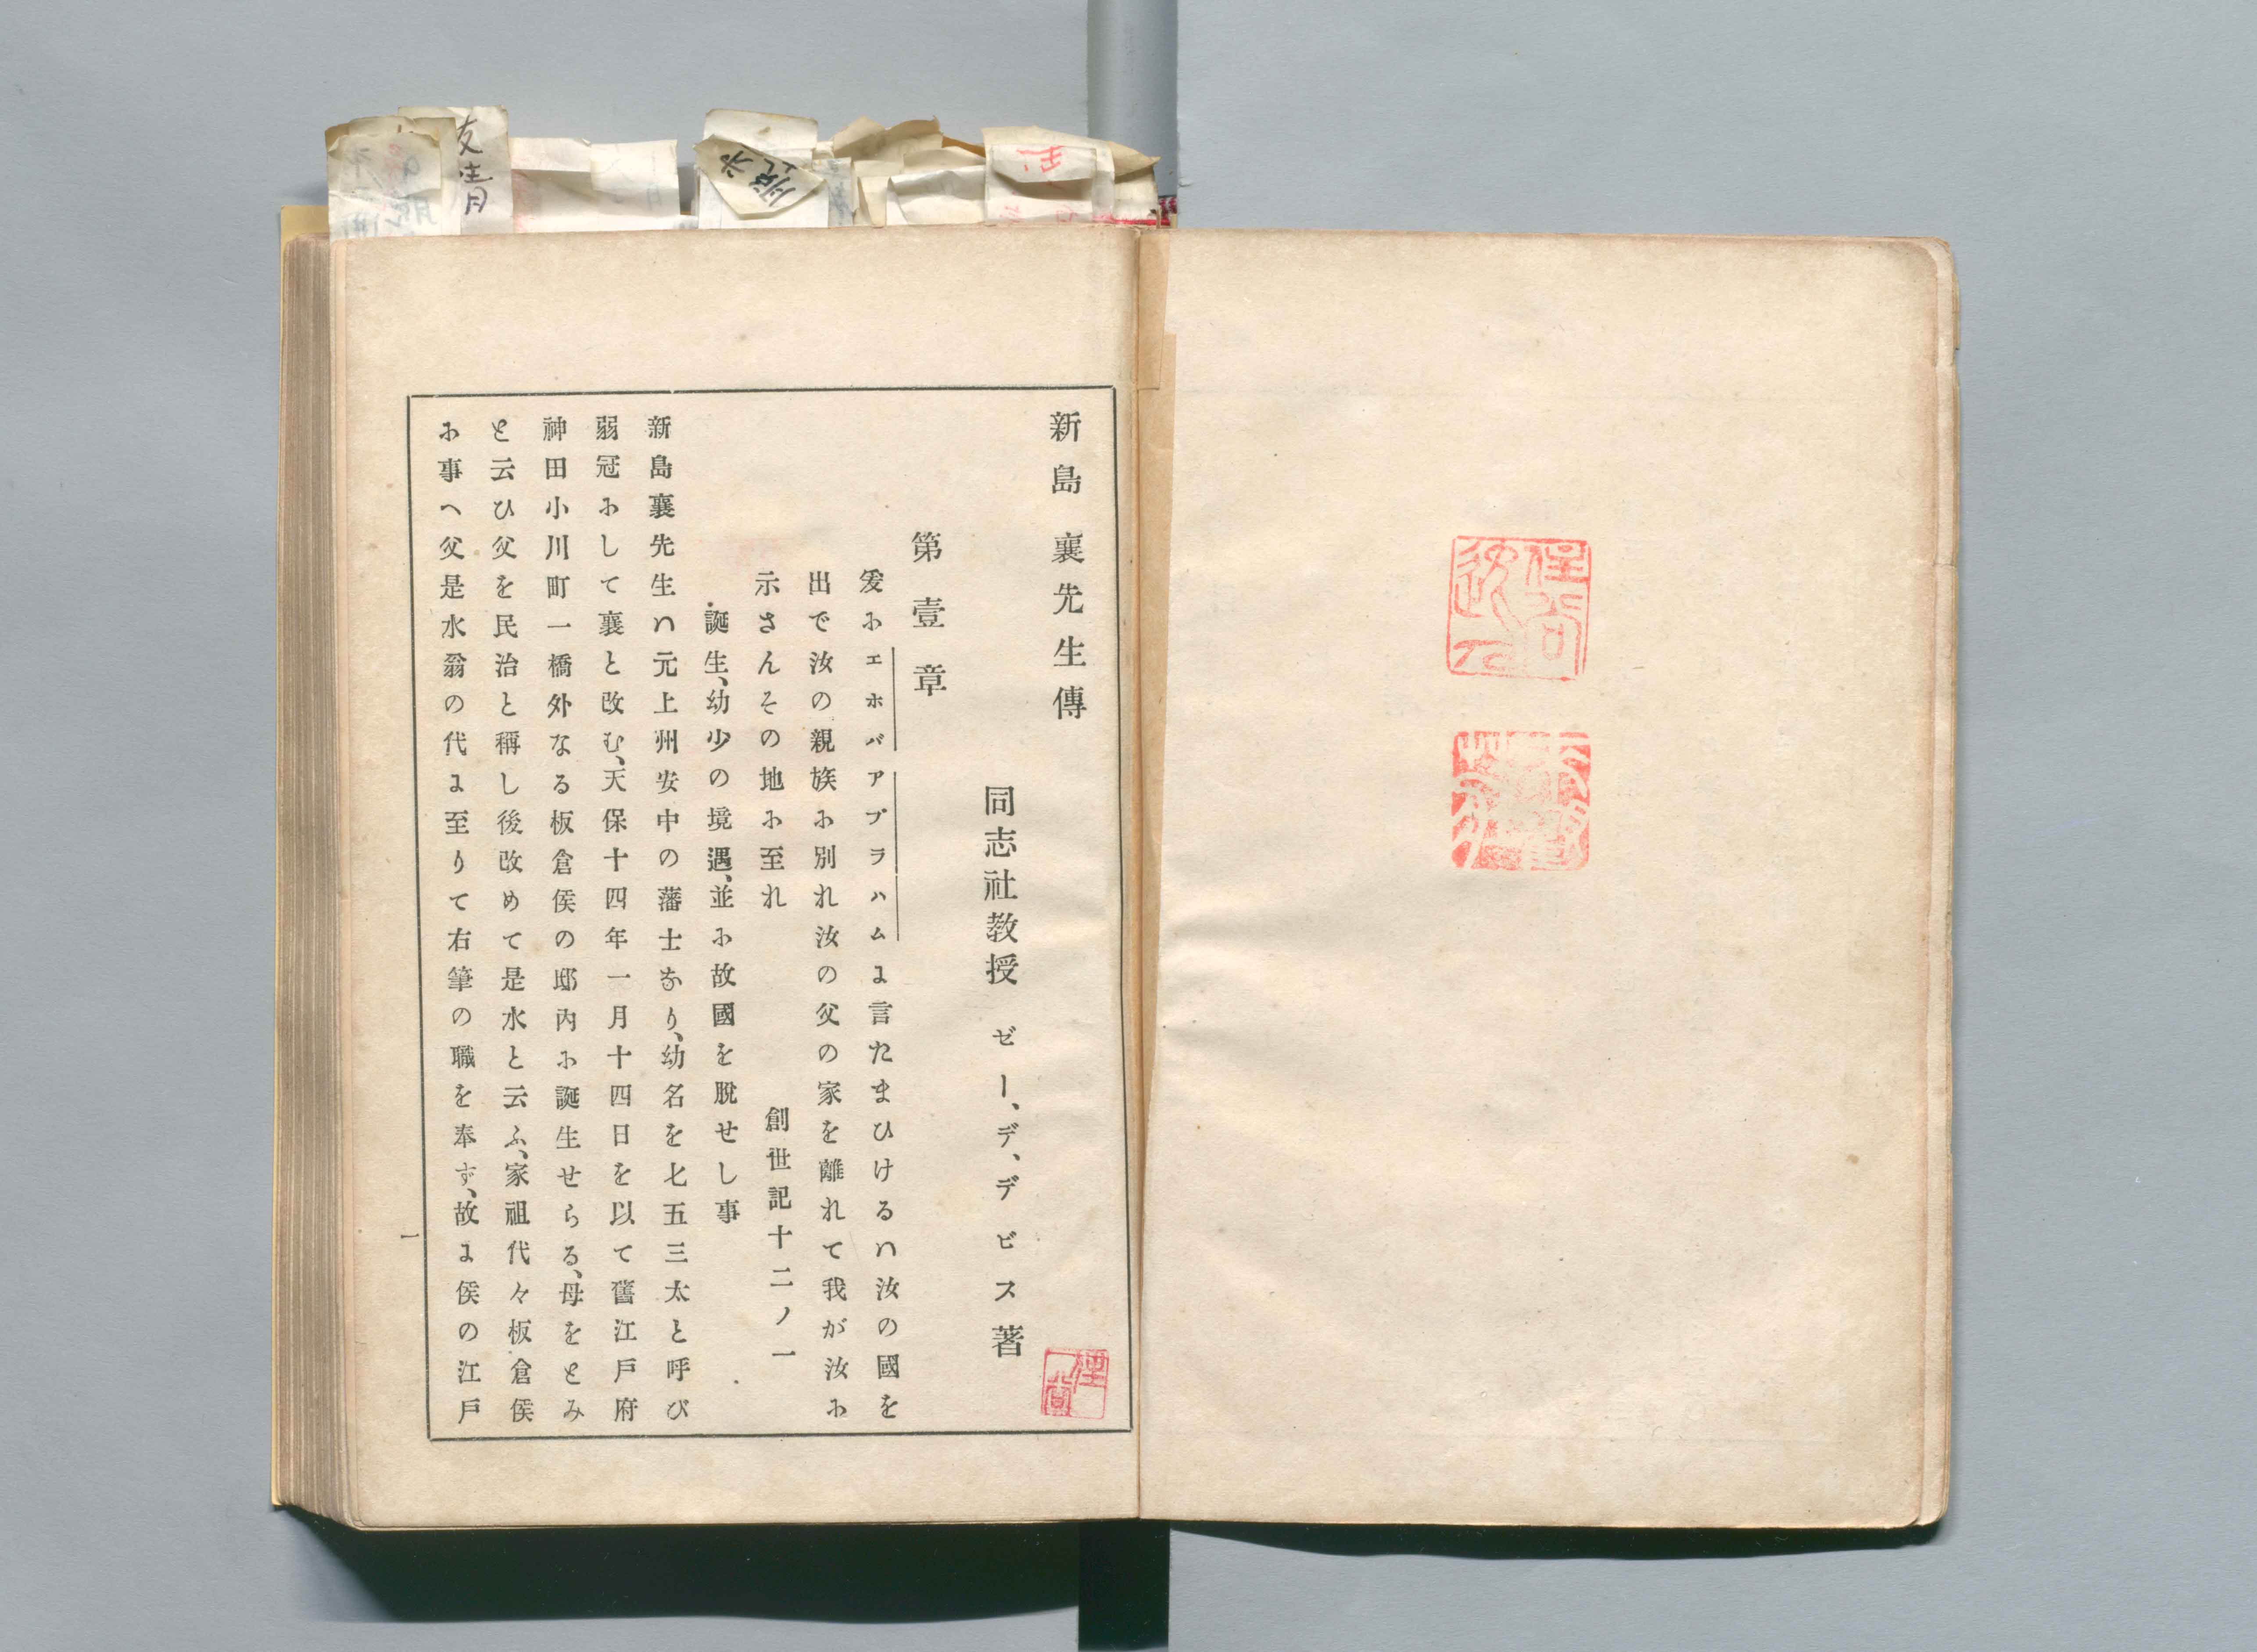 新島襄先生傳
同志社教授 ゼー、デ、デビス著
第壹章
爰にエホバアブラハムに言たまひけるハ汝の國を
出で汝の親族に別れ汝の父の家を離れて我が汝に
示さんその地に至れ 創世記十二ノ一
誕生、幼少の境遇、並に故國を脫せし事
新島襄先生ハ元上州安中の藩士なり、幼名を七五三太と呼び
弱冠にして襄と改む、天保十四年一月十四日を以て舊江戸府
神田小川町一橋外なる板倉侯の邸內に誕生せらる、母をとみ
と云ひ父を民治と稱し後改めて是水と云ふ、家祖代々板倉侯
に事へ父是水翁の代に至りて右筆の職を奉ず、故に侯の江戸
一